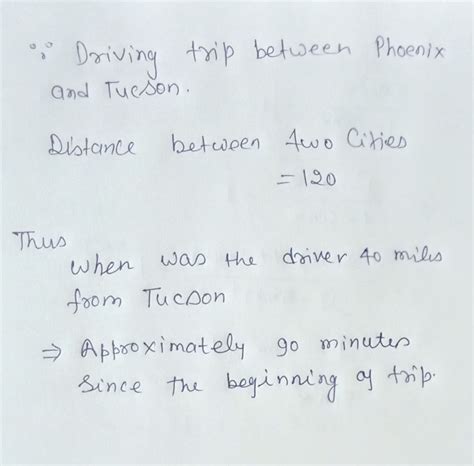 ∵ Driving trip between Phoenix
and Tucson.
Distance between two Cities
= 120
Thus
when was the driver 40 miles
from Tucson
⇒ Approximately 90 minutes
Since the beginning of trip.